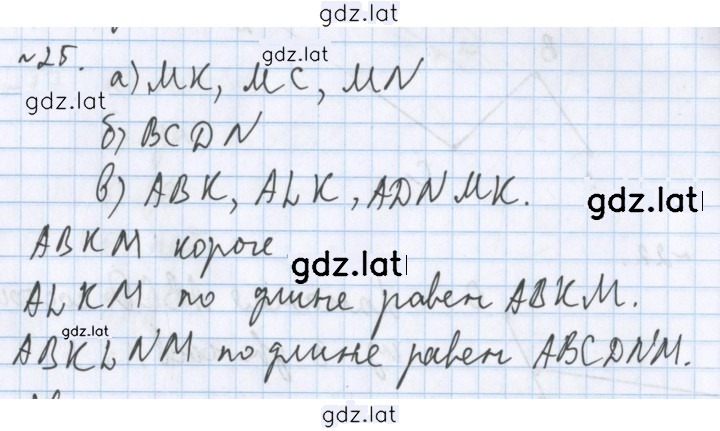 gdz.lat
№25.
gdz.lat
а) MK, MC, MN
gdz.lat
б) BCDN
в) ABK, ALK, ADNMK.
gdz.lat
ABKM короче
gdz.lat
ALKM по длине равен ABKM.
gdz.lat
ABKLNM по длине равен ABCDNM.
gdz.lat